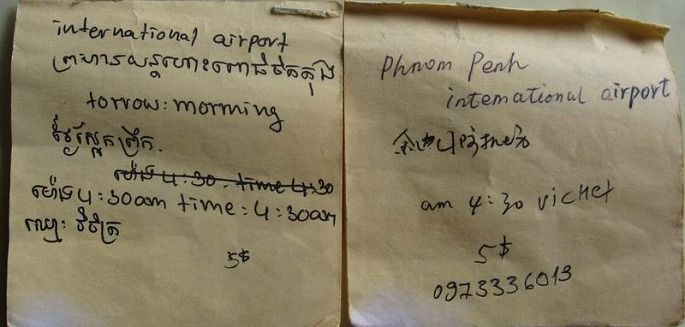 international airport
torrow: morning
ថ្ងៃស្អែកព្រឹក.
ម៉ោង ៤:30. time 4:30
ម៉ោង ៤:30am time: 4:30am
ឈ្មោះ វិចិត្រ
5$
Phnom Penh
international airport
am 4:30 vichet
5$
0973336013